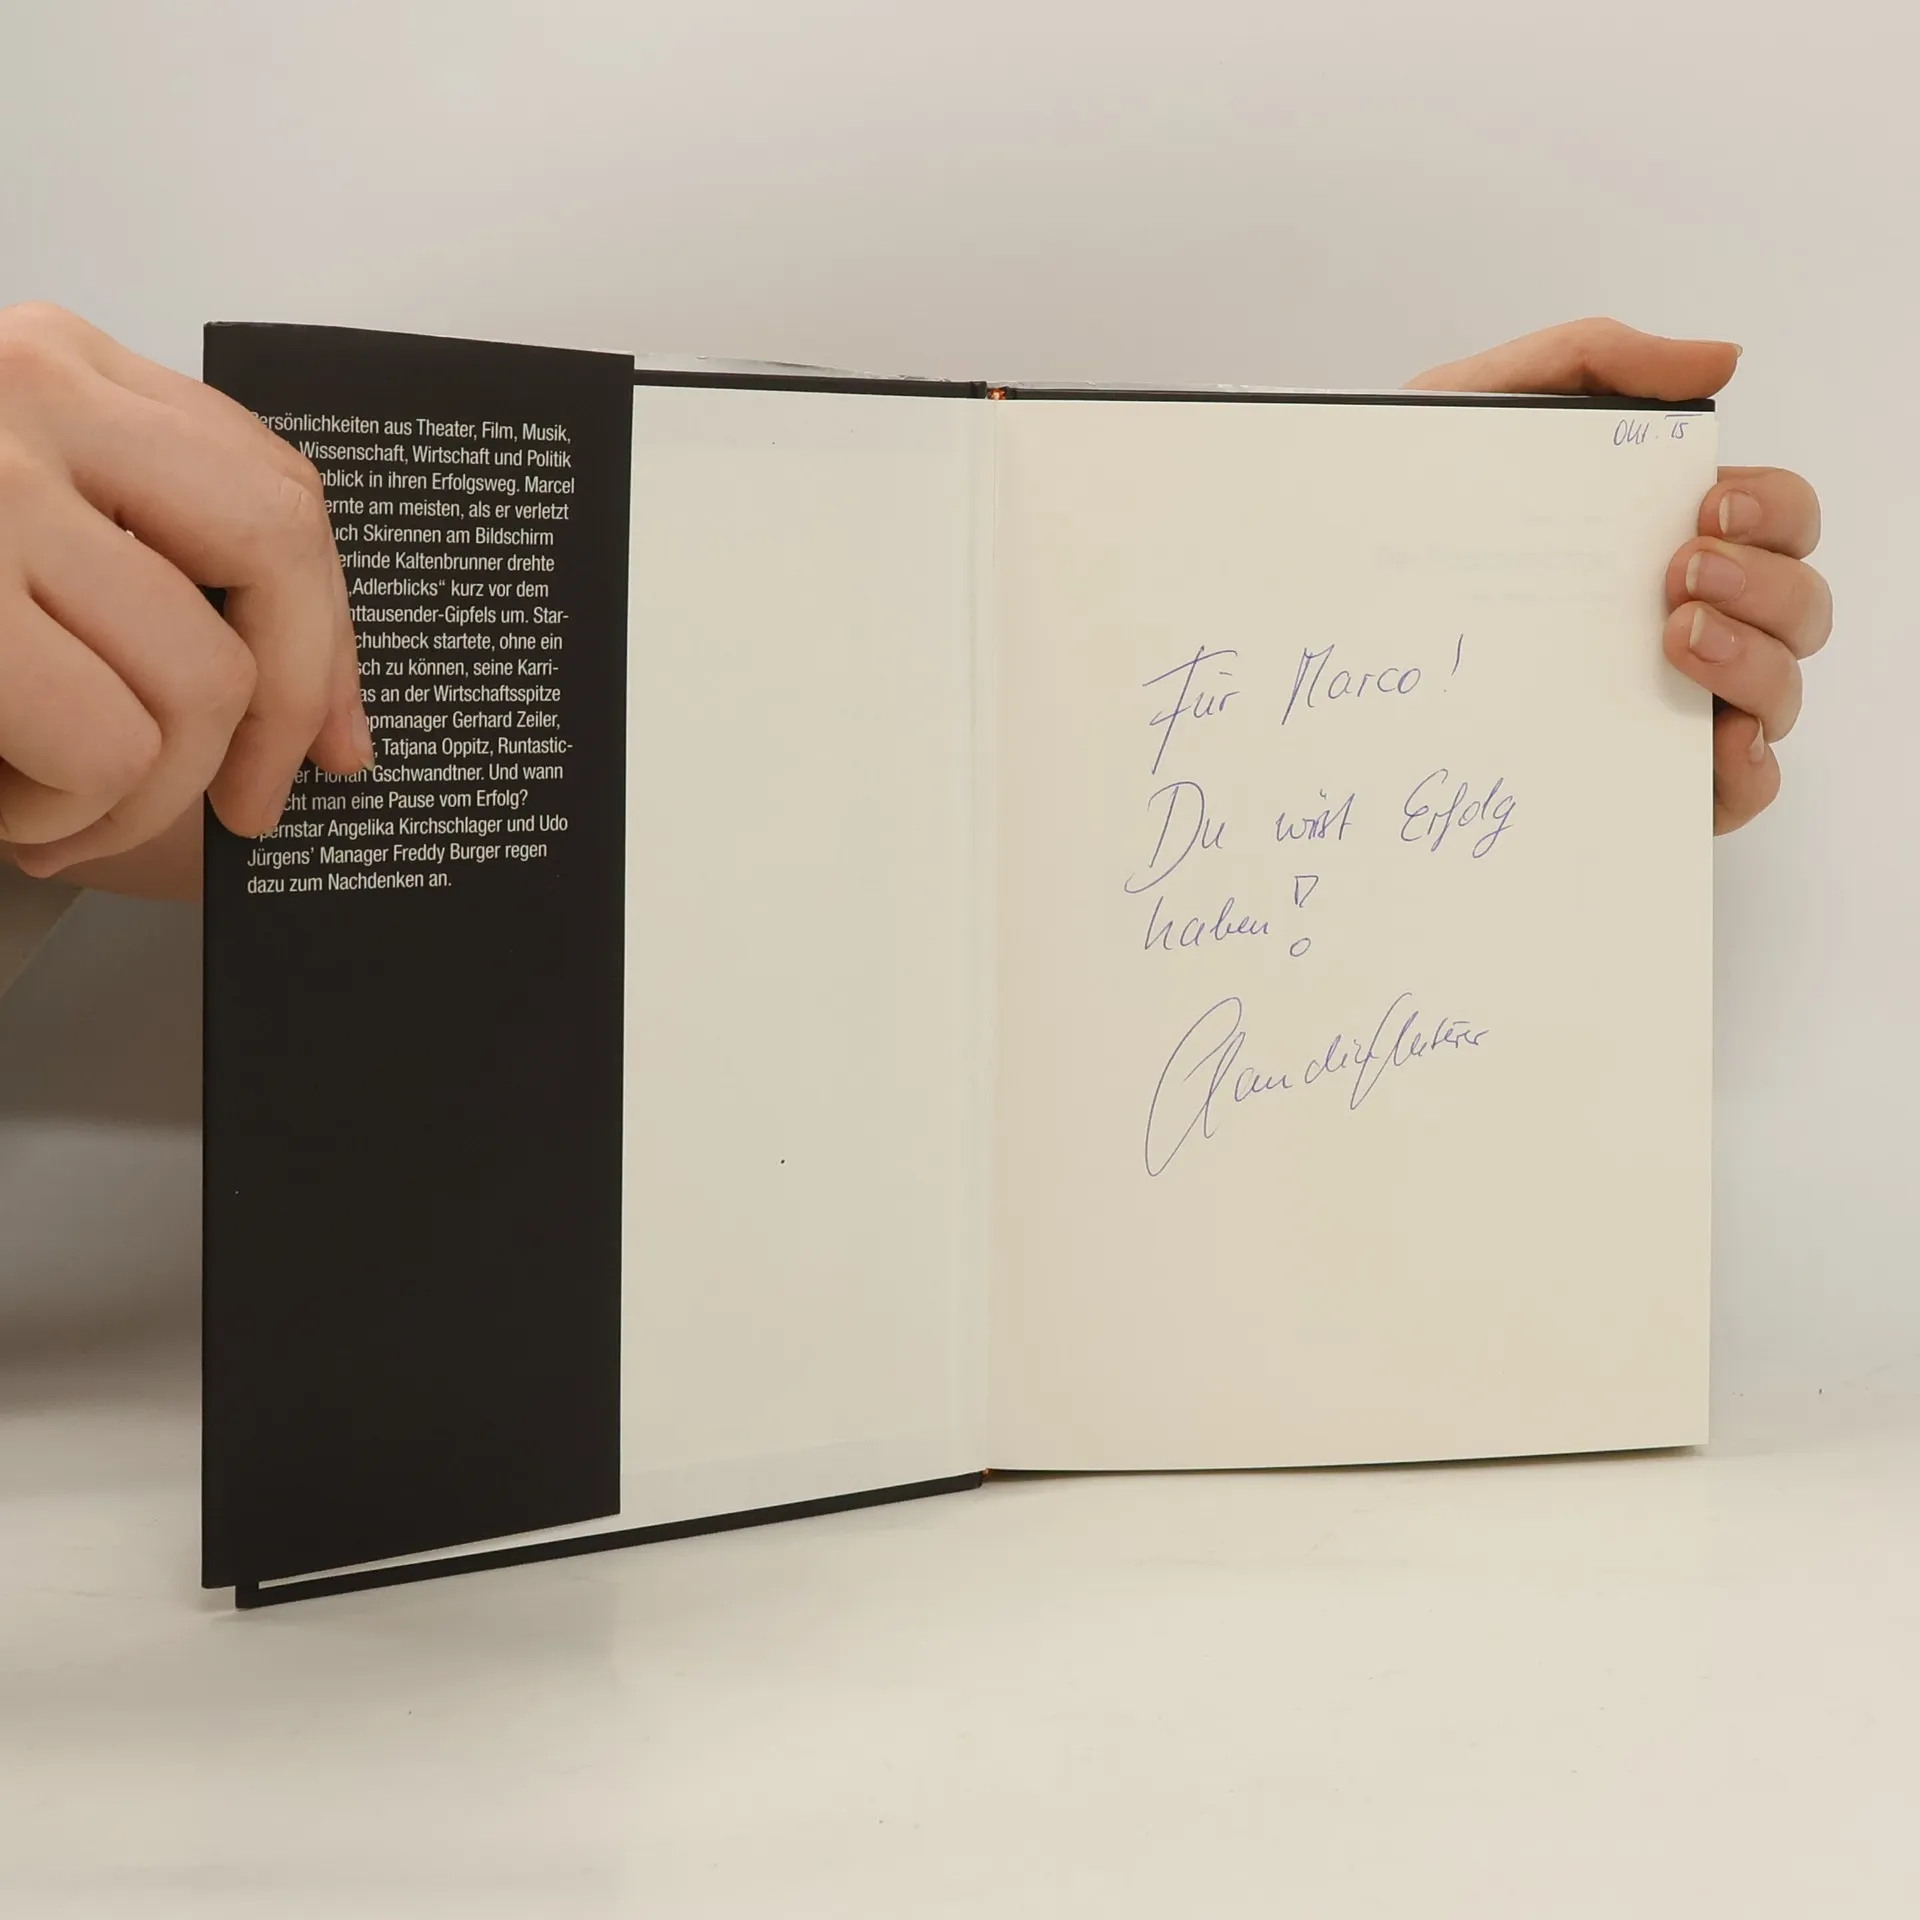 ersönlichkeiten aus Theater, Film, Musik,
Wissenschaft, Wirtschaft und Politik
blick in ihren Erfolgsweg. Marcel
ernte am meisten, als er verletzt
uch Skirennen am Bildschirm
erlinde Kaltenbrunner drehte
„Adlerblicks“ kurz vor dem
ttausender-Gipfels um. Star-
chuhbeck startete, ohne ein
sch zu können, seine Karri-
as an der Wirtschaftsspitze
pmanager Gerhard Zeiler,
, Tatjana Oppitz, Runtastic-
er Florian Gschwandtner. Und wann
cht man eine Pause vom Erfolg?
pernstar Angelika Kirchschlager und Udo
Jürgens’ Manager Freddy Burger regen
dazu zum Nachdenken an.
Okt. 15
Für Marco!
Du wirst Erfolg
haben!